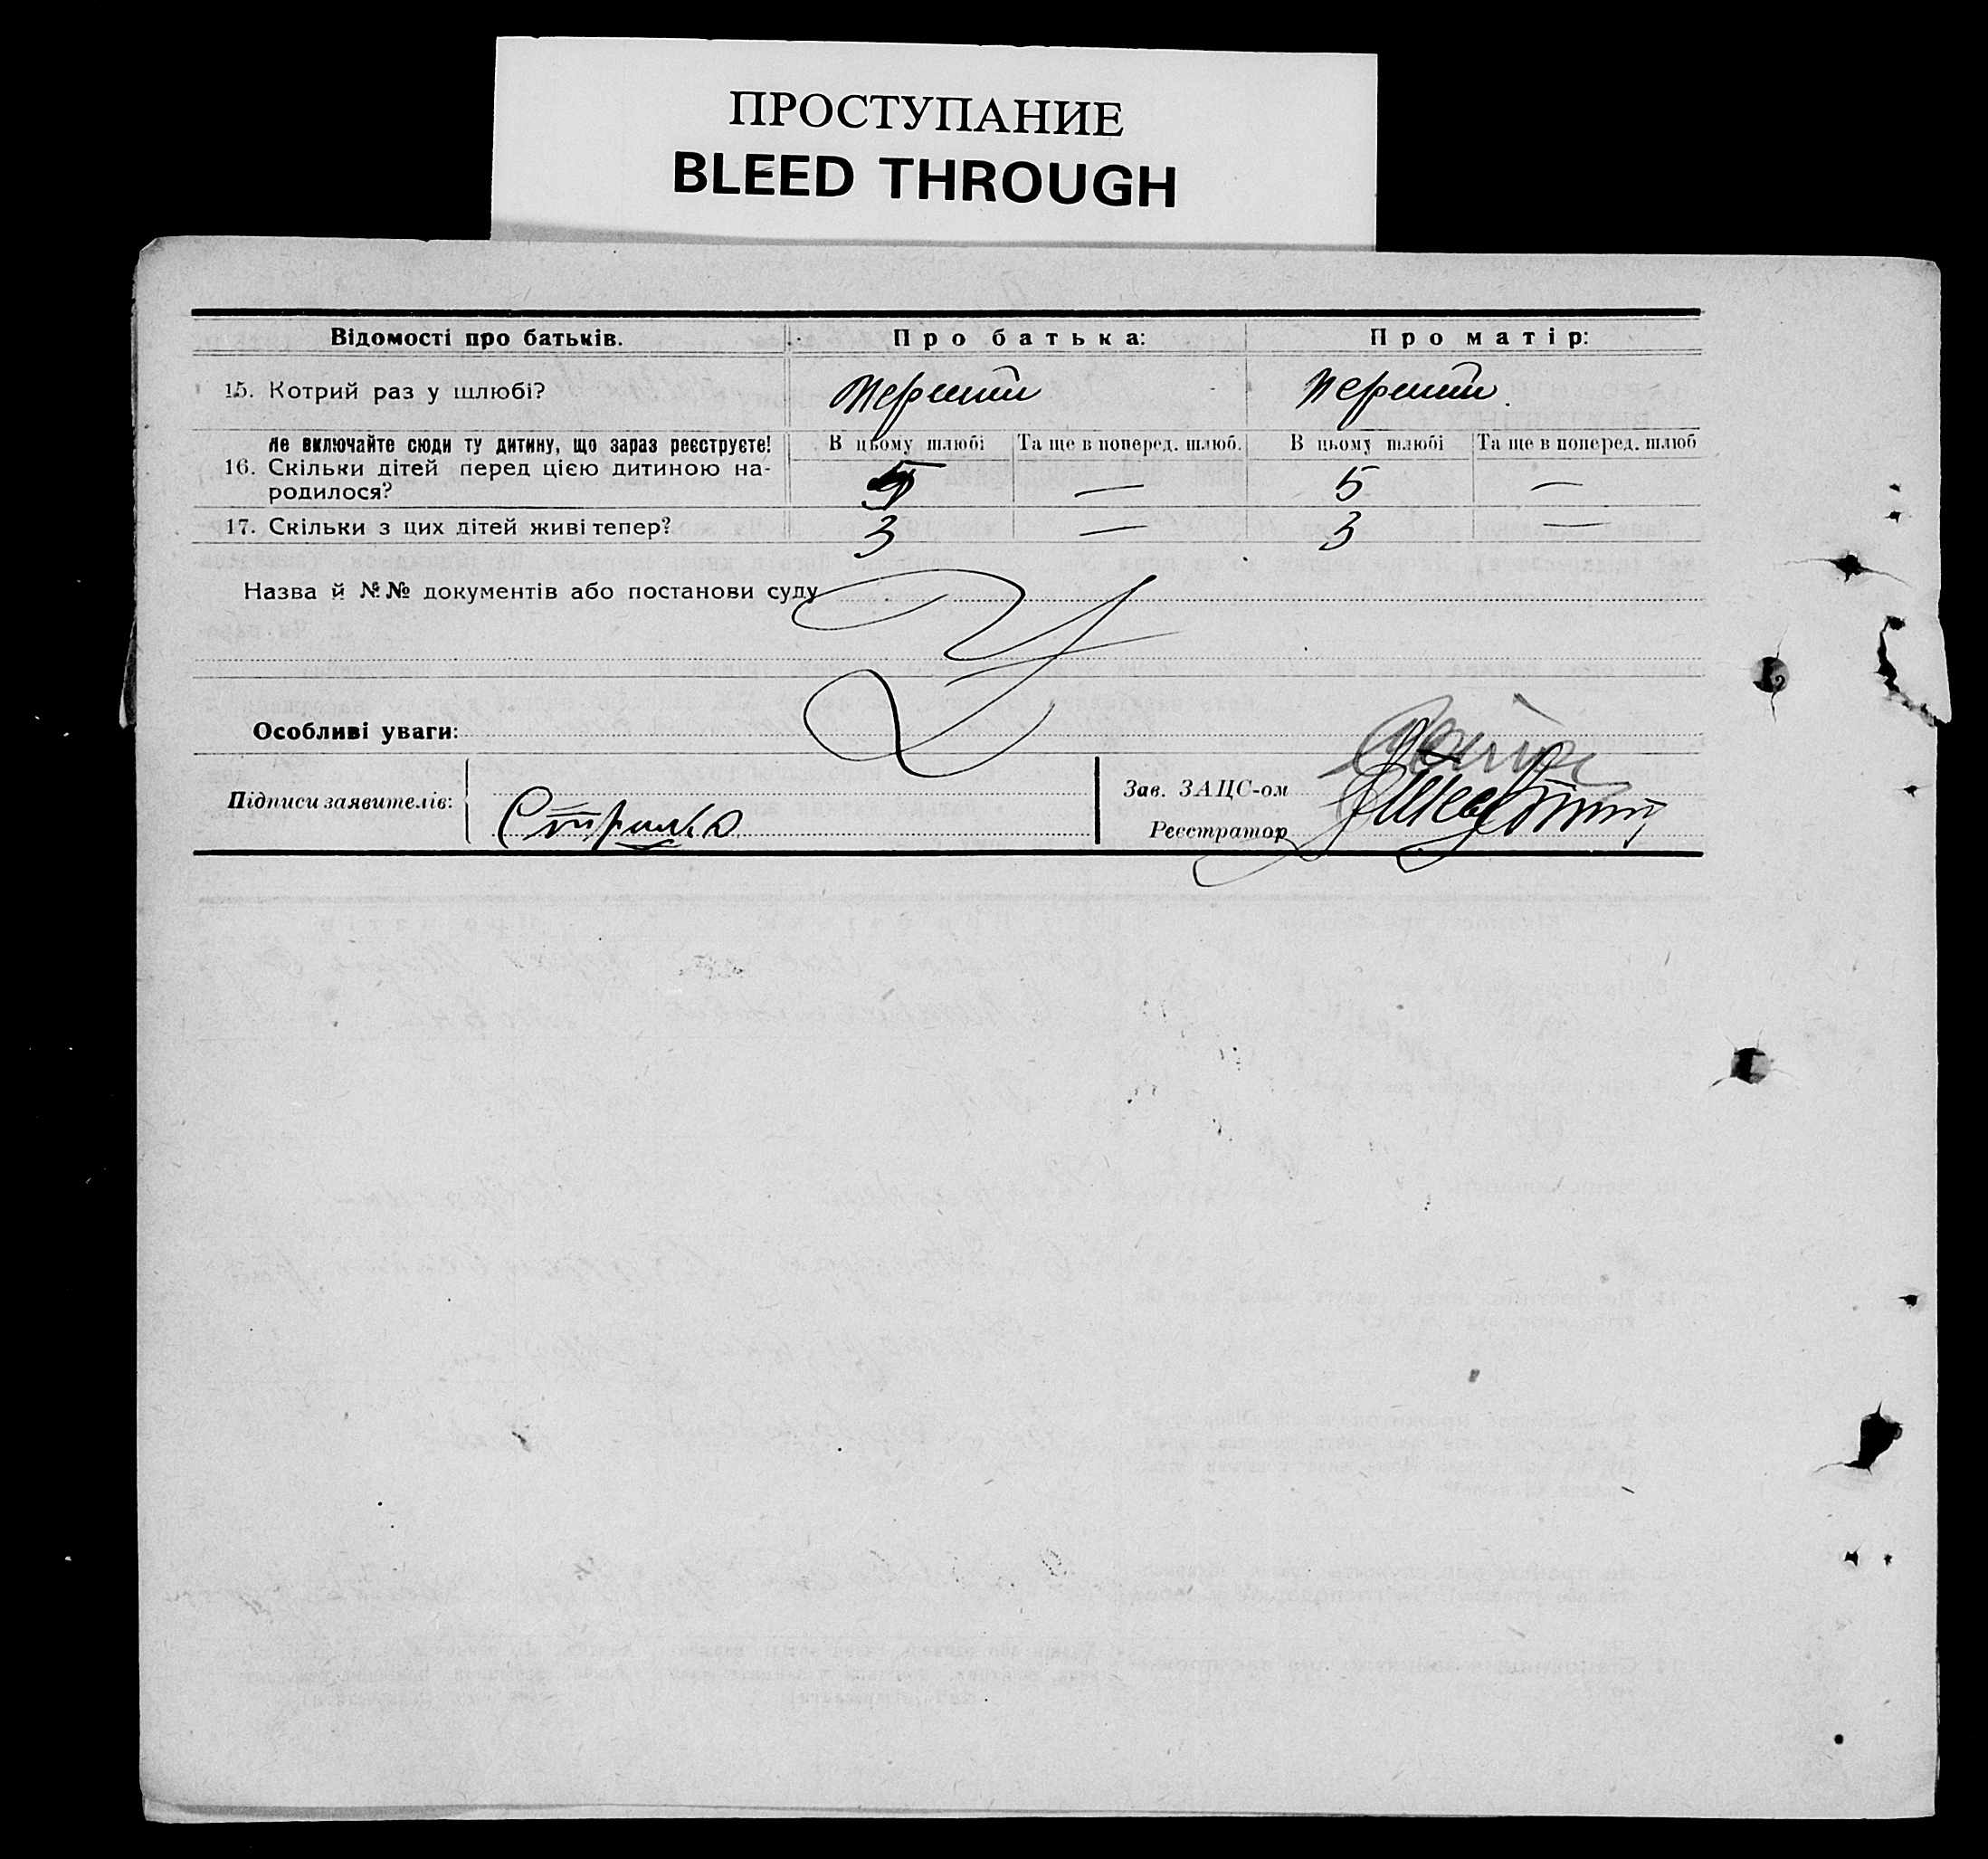 ПРОСТУПАНИЕ
BLEED THROUGH
Відомості про батьків. Про батька: Про матір:
15. Котрий раз у шлюбі? Перший Перший
Не включайте сюди ту дитину, що зараз реєструєте! В цьому шлюбі Та ще в поперед. шлюб. В цьому шлюбі Та ще в поперед. шлюб
16. Скільки дітей перед цією дитиною на-
родилося? 5 — 5 —
17. Скільки з цих дітей живі тепер? 3 — 3 —
Назва й №№ документів або постанови суду
Особливі уваги:
Підписи заявителів:
Зав. ЗАЦС-ом
Реєстратор